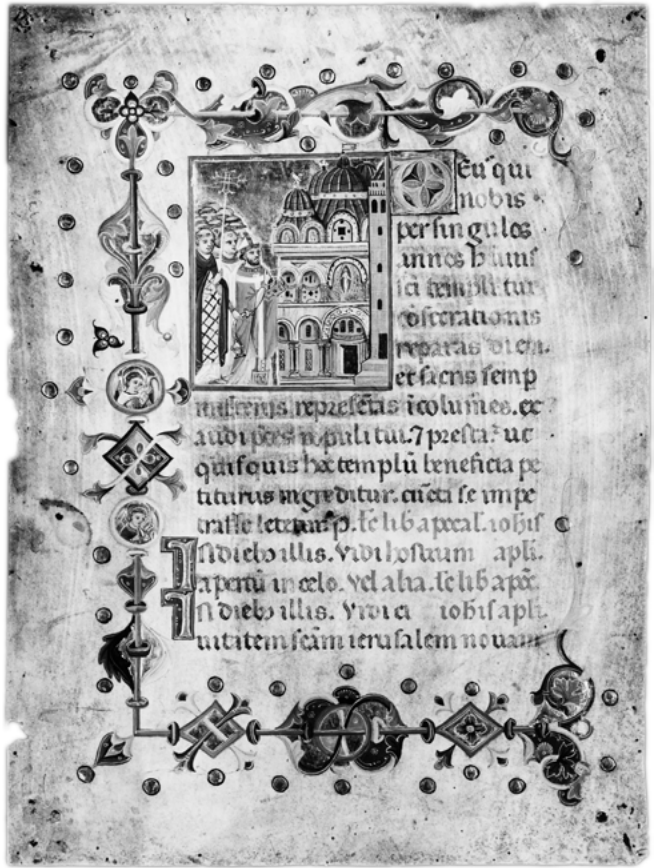 DEus qui
nobis
per singulos
annos huius
sci templi tui
cosecrationis
reparas diem.
et sacris semp
misteriis represetas icolumes. ex
audi pces populi tui. ⁊ presta. ut
quisquis hoc templū beneficia pe
titurus ingreditur. cūcta se impe
trasse letetur. p. le lib apocal. iohis
I diebȝ illis. Vidi hostium apli.
apertū in celo. vel alia. le lib apoc.
I diebȝ illis. Vidi ci iohis apli.
uitatem scām ierusalem nouam